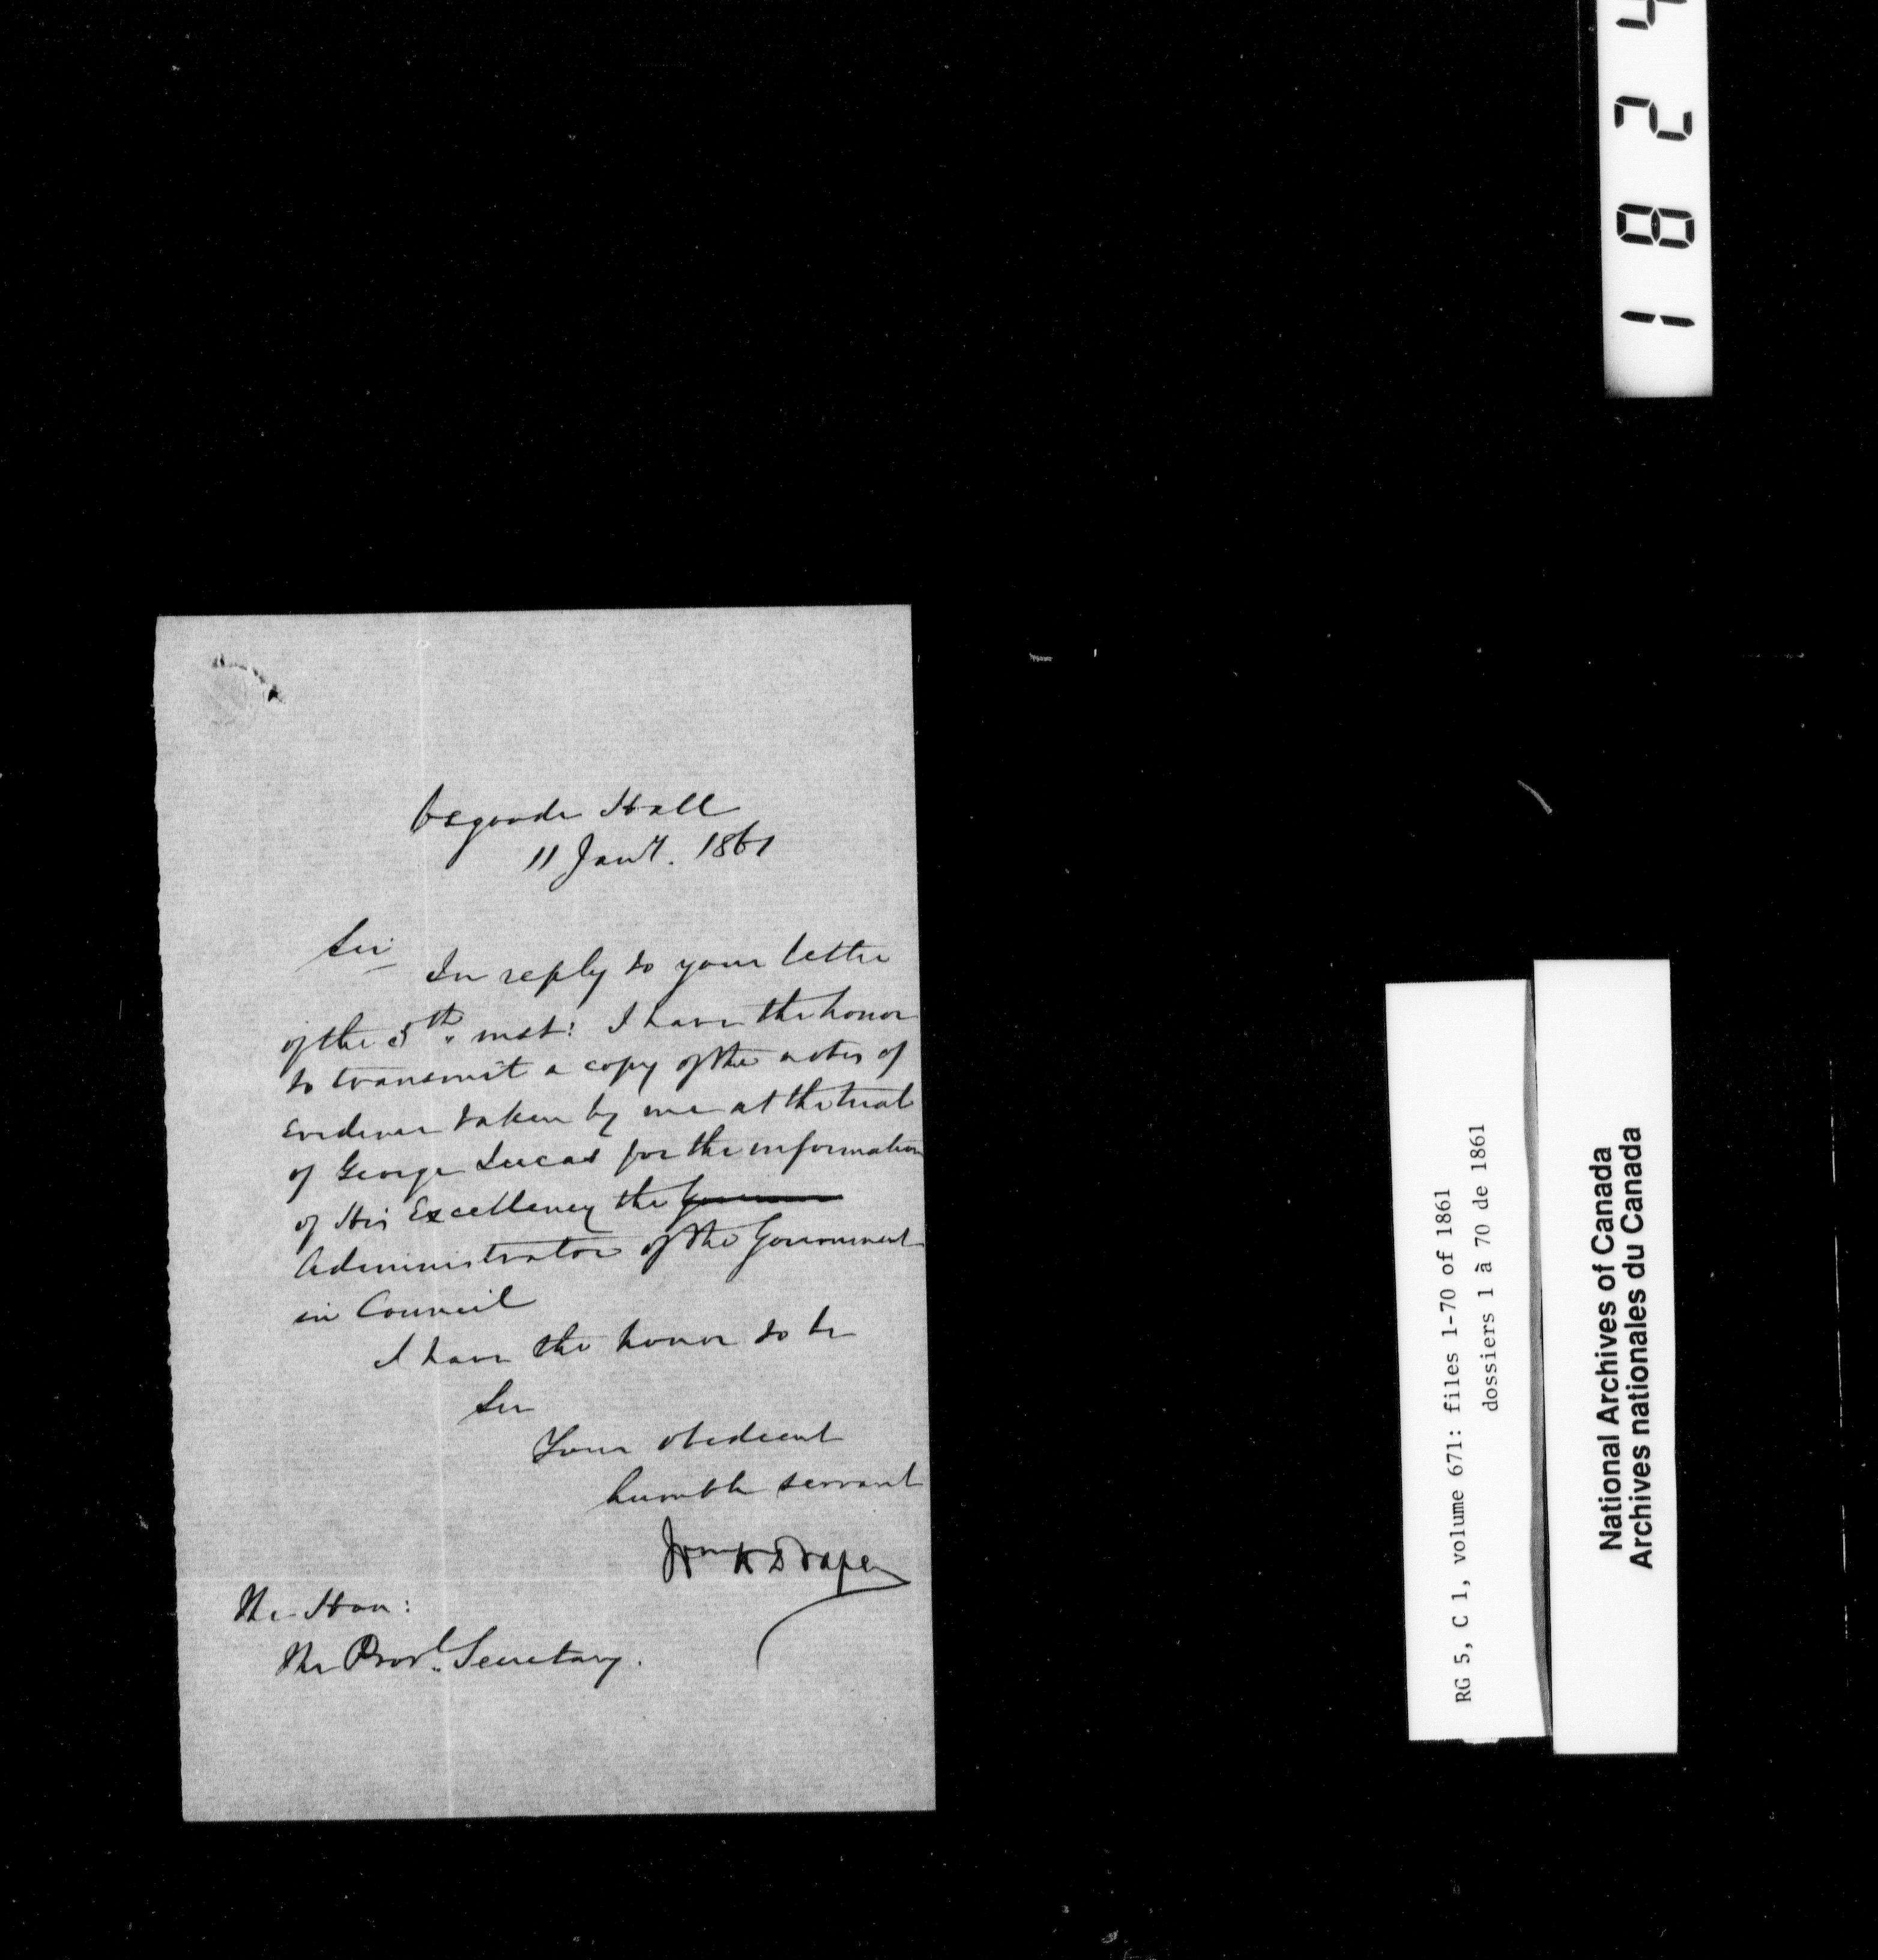 Osgoode Hall
11 Jany. 1861
Sir
In reply to your letter
of the 5th inst: I have the honor
to transmit a copy of the notes of
Evidence taken by me at the trial
of George Lucas for the information
of His Excellency the Governor
Administrator of the Government
in Council
I have the honor to be
Sir
Your obedient
humble servant
Wm H Draper
The Hon:
The Provl. Secretary.
1 8 2 4
RG 5, C 1, volume 671: files 1-70 of 1861
dossiers 1 à 70 de 1861
National Archives of Canada
Archives nationales du Canada